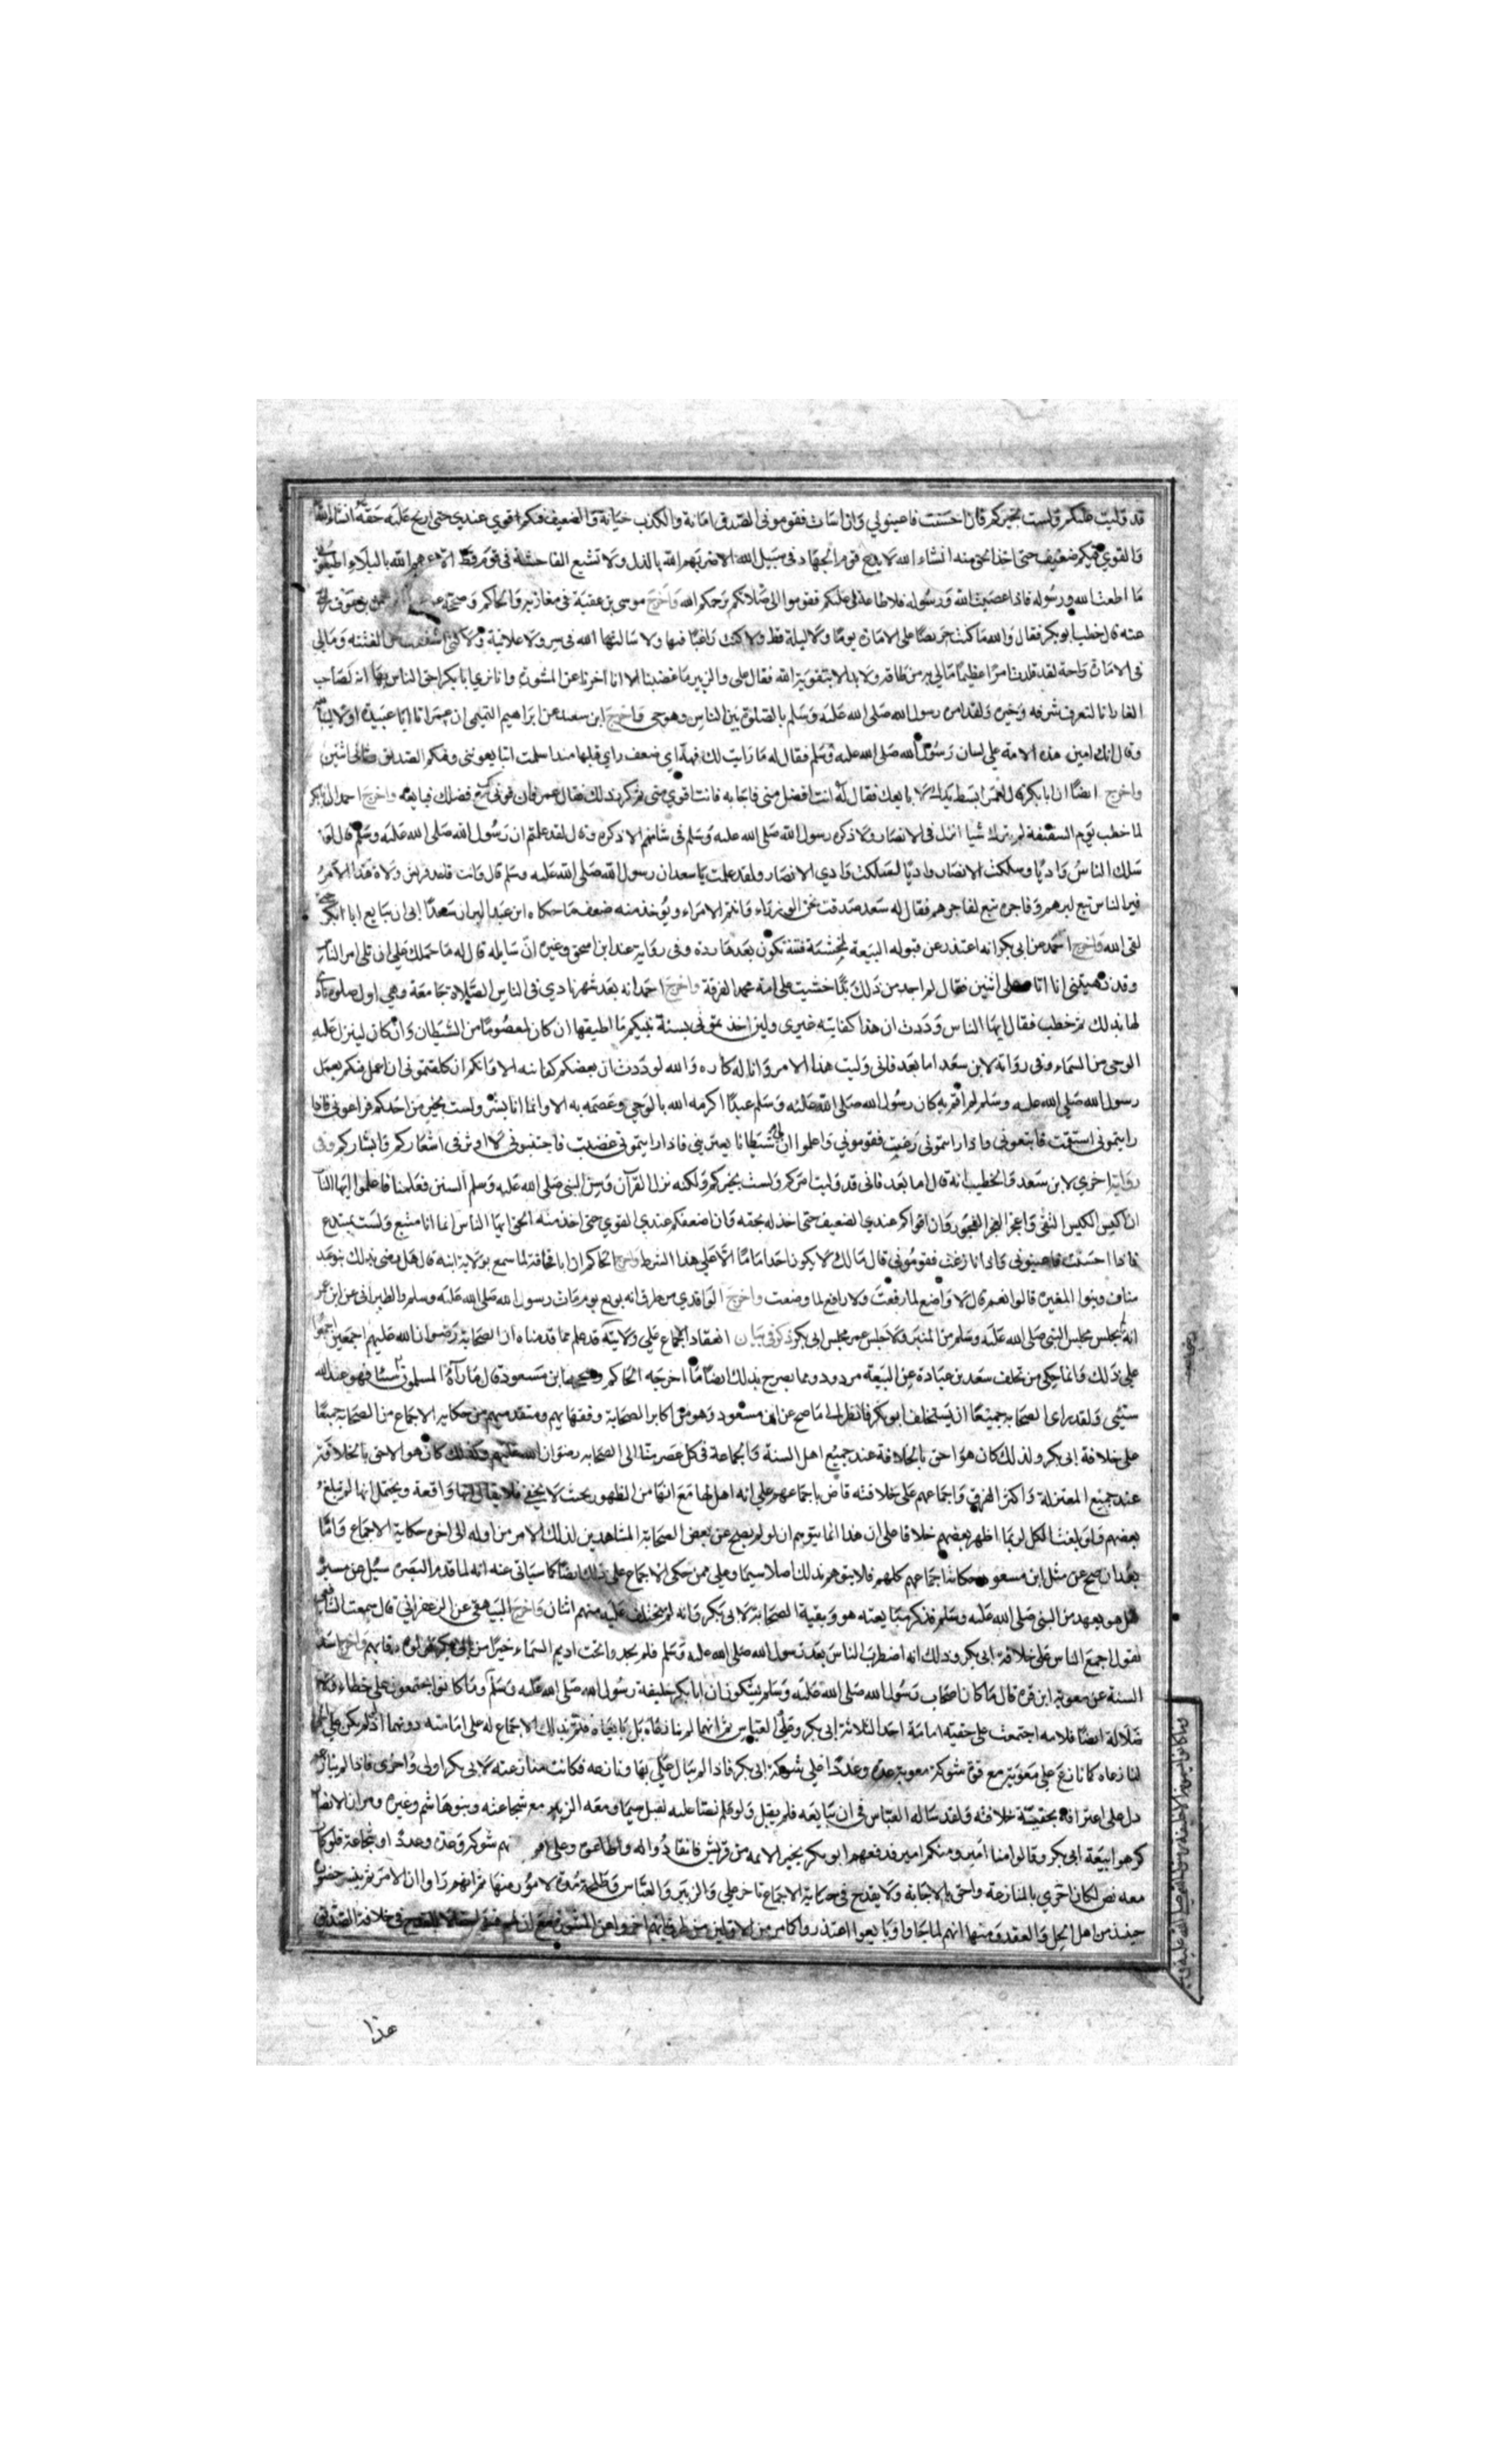 قد وليت عليكم ولست بخيركم فان احسنت فاعينوني وان اسات فقوموني الصدق امانة والكذب خيانة والضعيف فيكم قوي عندي حتى اريح عليه حقه انشاء الله
والقوي فيكم ضعيف حتى اخذ الحق منه انشاء الله لا يدع قوم الجهاد في سبيل الله الا ضربهم الله بالذل ولا تشيع الفاحشة في قوم قط الا عمهم الله بالبلاء اطيعوني
ما اطعت الله ورسوله فاذا عصيت الله ورسوله فلا طاعة لي عليكم فقوموا الى صلاتكم يرحمكم الله واخرج موسى بن عقبة في مغازيه والحاكم وصححه عن بن عوف رضي
عنه قال خطب ابو بكر فقال والله ما كنت حريصا على الامارة يوما ولا ليلة قط ولا كنت راغبا فيها ولا سالتها الله في سر ولا علانية ولكني اشفقت من الفتنة ومالي
في الامارة راحة لقد قلدت امرا عظيما مالي به من طاقة ولا يد الا بتقوية الله فقال علي والزبير ما غضبنا الا انا اخرنا عن المشورة وانا نرى ابا بكر احق الناس بها انه لصاحب
الغار وانا لنعرف شرفه وخيره ولقد امره رسول الله صلى الله عليه وسلم بالصلوة بين الناس وهو حي واخرج ابن سعد عن ابراهيم التيمي ان عمر اتى ابا عبيدة اولا ليبايعه
وقال انك امين هذه الامة على لسان رسول الله صلى الله عليه وسلم فقال له ما رايت لك فهة اي ضعف راي قبلها منذ اسلمت اتبايعوني وفيكم الصديق وثاني اثنين
واخرج ايضا ان ابا بكر قال لعمر ابسط يدك لا بايعك فقال له انت افضل مني فاجابه فانت اقوى مني ثم كرر ذلك فقال عمر فان قوتي لك مع فضلك فبايعه واخرج احمد ان ابا بكر
لما خطب يوم السقيفة لم يترك شيا انزل في الانصار ولا ذكره رسول الله صلى الله عليه وسلم في شانهم الا ذكره وقال لقد علمتم ان رسول الله صلى الله عليه وسلم قال لو
سلك الناس واديا وسلكت الانصار واديا لسلكت وادي الانصار ولقد علمت يا سعد ان رسول الله صلى الله عليه وسلم قال وانت قاعد قريش ولاة هذا الامر
فبر الناس تبع لبرهم وفاجره تبع لفاجرهم فقال له سعد صدقت نحن الوزراء وانتم الامراء ويوخذ منه ضعف ما حكاه ابن عبد البر ان سعدا ابى ان يبايع ابا بكر حتى
لقى الله واخرج احمد عن ابي بكر انه اعتذر عن قبوله البيعة لخشية فتنة تكون بعدها ردة وفي رواية عند ابن اسحق وغيره ان سايله قال له ما حملك على ان تلى امر الناس
وقد نهيتني ان اتامر على اثنين فقال لم اجد من ذلك بدا خشيت على امة محمد الفرقة واخرج احمد انه بعد شهر نادى في الناس الصلاة جامعة وهي اول صلوة نادى
لها بذلك ثم خطب فقال ايها الناس وددت ان هذا كفانيه غيري ولين اخذتموني بسنة نبيكم ما اطيقها ان كان لمعصوما من الشيطان وان كان لينزل عليه
الوحي من السماء وفي رواية لابن سعد اما بعد فاني وليت هذا الامر وانا له كاره والله لوددت ان بعضكم كفانيه الا وانكم ان كلفتموني ان اعمل فيكم بعمل
رسول الله صلى الله عليه وسلم لم اقم به كان رسول الله صلى الله عليه وسلم عبدا اكرمه الله بالوحي وعصمه به الا وانما انا بشر ولست بخير من احدكم فراعوني فاذا
رايتموني استقمت فاتبعوني واذا رايتموني زغت فقوموني واعلموا ان لي شيطانا يعتريني فاذا رايتموني غضبت فاجتنبوني لا اوثر في اشعاركم وابشاركم وفي
رواية اخرى لابن سعد والخطيب انه قال اما بعد فاني قد وليت امركم ولست بخيركم ولكنه نزل القرآن وسن النبي صلى الله عليه وسلم السنن فعلمنا فاعلموا ايها الناس
ان اكيس الكيس التقى واعجز العجز الفجور وان اقواكم عندي الضعيف حتى اخذ له بحقه وان اضعفكم عندي القوي حتى اخذ منه الحق ايها الناس انما انا متبع ولست بمبتدع
فاذا احسنت فاعينوني واذا انا زغت فقوموني قال مالك لا يكون احد اماما الا على هذا الشرط واخرج الحاكم ان ابا قحافة لما سمع بولاية ابنه قال هل رضي بذلك بنو عبد
مناف وبنوا المغيرة قالوا نعم قال لا واضع لما رفعت ولا رافع لما وضعت واخرج الواقدي من طرق انه بويع يوم مات رسول الله صلى الله عليه وسلم والطبراني عن ابن عمر
انه لم يجلس مجلس النبي صلى الله عليه وسلم من المنبر ولا جلس عمر مجلس ابي بكر ذكر في بيان انعقاد الاجماع على ولايته قد علم مما قدمناه ان الصحابة رضوان الله عليهم اجمعين اجمعوا
على ذلك وانما حكي من تخلف سعد بن عبادة عن البيعة مردود ومما يصرح بذلك ايضا ما اخرجه الحاكم وصححه ابن مسعود قال ما رآه المسلمون سيئا فهو عند الله
سيئ ولقد راى الصحابة جميعا ان يستخلف ابو بكر فانظر الى ما صح عن ابن مسعود وهو من اكابر الصحابة وفقهايهم ومتقدميهم من حكاية الاجماع من الصحابة جميعا
على خلافة ابي بكر ولذلك كان هو احق بالخلافة عند جميع اهل السنة والجماعة في كل عصر منا الى الصحابه رضوان الله عليهم وكذلك كان هو الاحق بالخلافة
عند جميع المعتزلة واكثر الفرق واجماعهم على خلافته قاض باجماعهم على انه اهل لها مع انها من الظهور بحيث لا يخفى فلا يقال انها واقعة ويحتمل انها لم تبلغ
بعضهم ولو بلغت الكل لربما اظهر بعضهم خلافا على ان هذا انما يتوهم ان لو لم يصح عن بعض الصحابة المشاهدين لذلك الامر من اوله الى اخره حكاية الاجماع واما
بعد ان صح عن مثل ابن مسعود حكاية اجماعهم كلهم فلا يتوهم ذلك اصلا سيما وعلي ممن حكى الاجماع على ذلك ايضا كما سياتي عنه انه لما قدم البصرة سيل عن مسيره
هل هو بعهد من النبي صلى الله عليه وسلم فذكر مبايعته هو وبقية الصحابة لابي بكر وانه لم يختلف عليه منهم اثنان واخرج البيهقي عن الزعفراني قال سمعت الشافعي
يقول اجمع الناس على خلافة ابي بكر وذلك انه اضطرب الناس بعد رسول الله صلى الله عليه وسلم فلم يجدوا تحت اديم السماء خيرا من ابي بكر فولوه رقابهم واخرج اسد
السنة عن معوية ابن قرة قال ما كان اصحاب رسول الله صلى الله عليه وسلم يشكون ان ابا بكر خليفة رسول الله صلى الله عليه وسلم وما كانوا يجتمعون على خطاء ولا
ضلالة ايضا فالامة اجتمعت على حقية امامة احد الثلاثة ابي بكر وعلي والعباس ثم انهما لم ينازعاه بل بايعاه فتم بذلك الاجماع له على امامته دونهما اذ لو لم يكن على الحق
لنازعاه كما نازع علي معوية مع قوة شوكة معوية عدة وعددا على شوكة ابي بكر فاذا لم يبال علي بها ونازعه فكانت منازعته لابي بكر اولى واحرى فاذا لم ينازعه
دل على اعترافه بحقية خلافته ولقد ساله العباس في ان يبايعه فلم يقبل ولو علم نصا عليه لقبل سيما ومعه الزبير مع شجاعته وبنو هاشم وغيره ومر ان الانصار
كرهوا بيعة ابي بكر وقالوا منا امير ومنكم امير فدفعهم ابو بكر بخبر الائمة من قريش فانقادوا له واطاعوه وعلي اقوى منهم شوكة وعدة وعددا وشجاعة فلو كان
معه نص لكان احرى بالمنازعة واحق بالاجابة ولا يقدح في حكاية الاجماع تاخر علي والزبير والعباس وطلحة مدة لامور منها انهم راوا ان الامر تم بمن حضره
حينئذ من اهل الحل والعقد ومنها انهم لما جاوا وبايعوا اعتذروا كما مر من الاولين من طرق بانهم اخروا عن المشورة مع ان لهم فيها حقا لا للقدح في خلافة الصديق
هذا